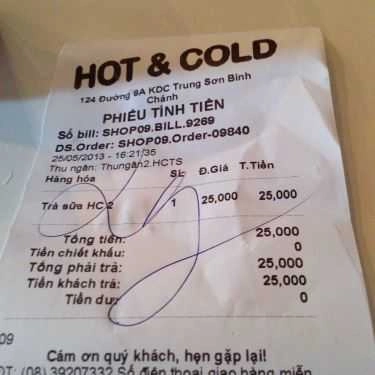 HOT & COLD
124 Đường 9A KDC Trung Sơn Bình
Chánh
PHIẾU TÍNH TIỀN
Số bill: SHOP09.BILL.9269
DS.Order: SHOP09.Order-09840
25/05/2013 - 16:21:35
Thu ngân: Thungân2.HCTS
Hàng hóa SL Đ.Giá T.Tiền
Trà sữa HC 2 1 25,000 25,000
Tổng tiền: 25,000
Tiền chiết khấu: 0
Tổng phải trả: 25,000
Tiền khách trả: 25,000
Tiền dư: 0
09
Cám ơn quý khách, hẹn gặp lại!
ĐT: (08) 39207332 Số điện thoại giao hàng miễn